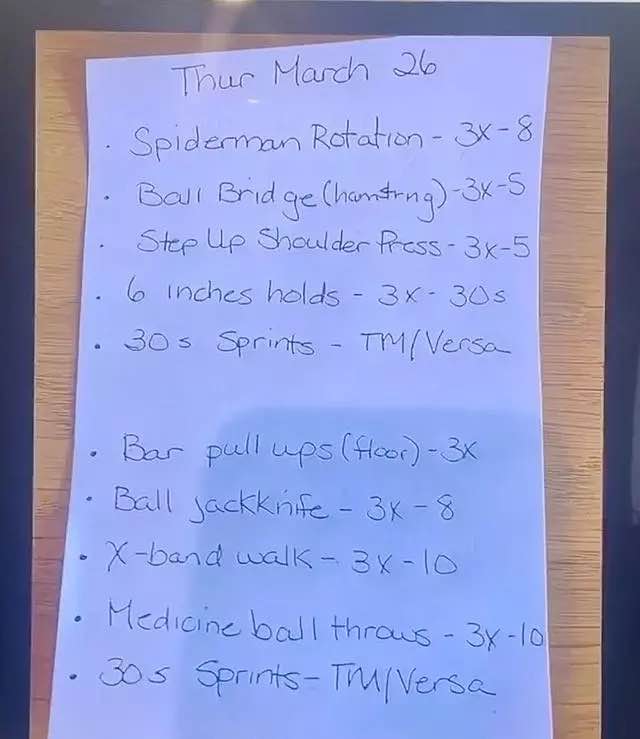 Thur March 26
· Spiderman Rotation - 3x - 8
· Ball Bridge (hamstrng) - 3x - 5
· Step Up Shoulder Press - 3x - 5
· 6 inches holds - 3x - 30s
· 30s Sprints - TM/Versa
· Bar pull ups (floor) - 3x
· Ball jackknife - 3x - 8
· X-band walk - 3x - 10
· Medicine ball throws - 3x - 10
· 30s Sprints - TM/Versa